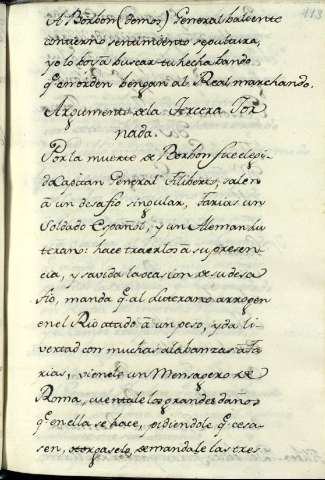 113
A Borbon (demos) General baliente
con tierno sentimiento sepultura,
yo lo boy a buscar tu hecha tando
qe en orden bengan al Real marchando.
Argumento de la Tercera Jor
nada.
Por la muerte de Borbon fue elegi-
do Capitan General Filiberto, salen
à un desafio singular, Farias un
Soldado Español, y un Aleman Lu
terano: hace traerlos à su presen-
cia, y savida la ocasion de su desa
fio, manda qe. al Luterano arrogen
en el Rio atado à un peso, y da li-
vertad con muchas alabanzas a Fa
rias, vienele un Mensagero de
Roma, cuentale los grandes daños
qe en ella se hace, pidiendole qe. cesa-
sen, otorgaselo, demandale las tres